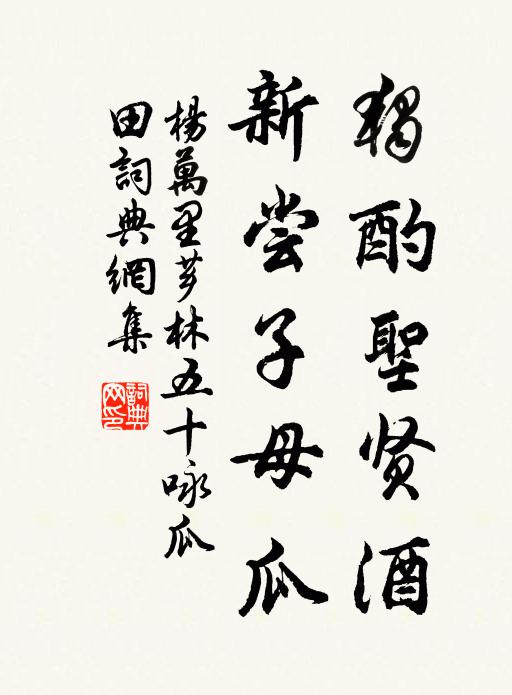 獨酌聖贤酒
新尝子母瓜
楊萬里芗林五十咏瓜
田詞典網集
詞典網印